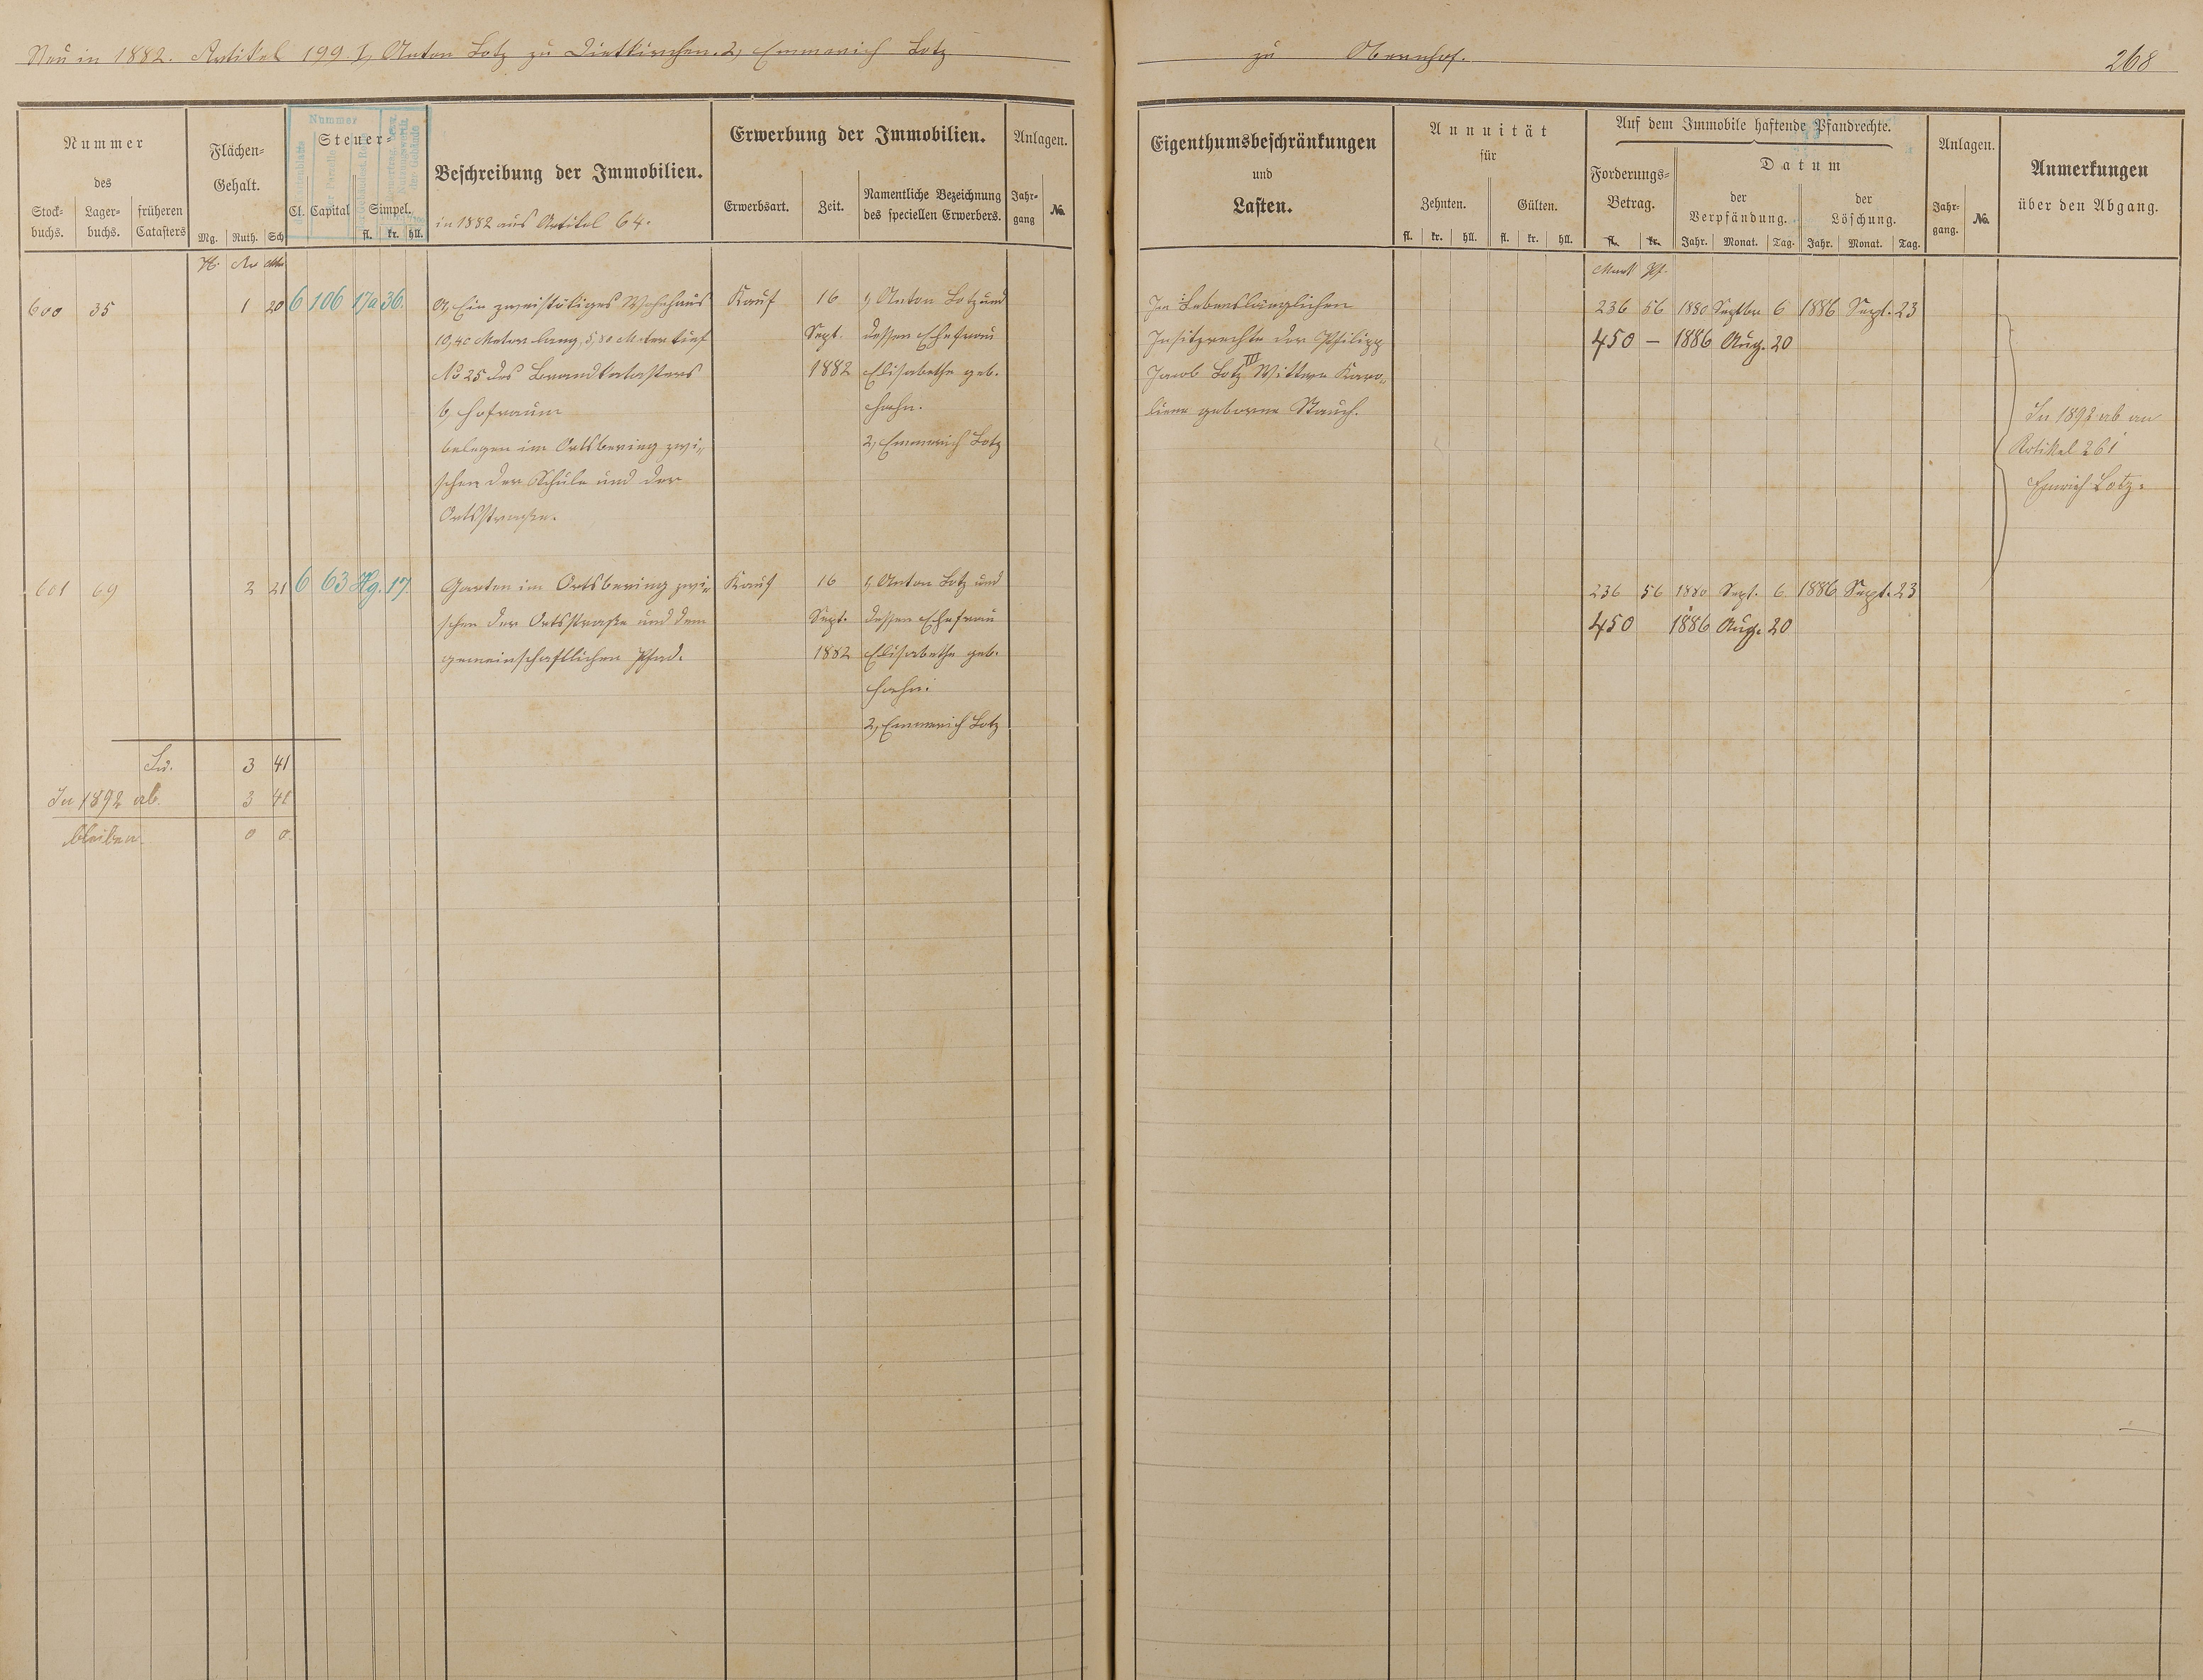 Neu in 1882. Artikel 199. 1, Anton Lotz zu Dietkirchen. 2, Emmerich Lotz
zu Obernhof.
268
Nummer
des
Stock-
buchs.
Lager-
buchs.
früheren
Catasters
Flächen-
Gehalt.
Mg. Ruth. Sch
Nummer
Steuer-
Cl. Capital Simpel.
fl. kr. hll.
Beschreibung der Immobilien.
in 1882 aus Artikel 64.
Erwerbung der Immobilien.
Erwerbsart.
Zeit.
Namentliche Bezeichnung
des speciellen Erwerbers.
Anlagen.
Jahr-
gang
No.
Eigenthumsbeschränkungen
und
Lasten.
Annuität
für
Zehnten.
Gülten.
fl. kr. hll. fl. kr. hll.
Auf dem Immobile haftende Pfandrechte.
Forderungs-
Betrag.
fl. kr.
Datum
der
Verpfändung.
der
Löschung.
Jahr. Monat. Tag. Jahr. Monat. Tag.
Anlagen.
Jahr-
gang.
No.
Anmerkungen
über den Abgang.
H. Ar Mtr
Mark Pf.
600 35 1 20 6 106 17a 36. a, Ein zweistökiges Wohnhaus Kauf 16 1, Anton Lotz und
10,40 Meter lang, 5,80 Meter tief Sept. dessen Ehefrau
No 25 des Brandkatasters 1882 Elisabethe geb.
b, Hofraum Hahn.
belegen im Ortsbering zwi- 2, Emmerich Lotz
schen der Schule und der
Ortsstraße.
Lebenslänglichen
Insitzrechte der Philipp
Jacob Lotz III Wittwe Karo-
line geborne Stauch.
236 56 1880 Septbr 6 1886 Sept. 23
450 — 1886 Aug. 20
In 1892 ab an
Artikel 261
Emrich Lotz.
601 69 2 21 6 63 Hg. 17. Garten im Ortsbering zwi- Kauf 16 1, Anton Lotz und
schen der Ortsstraße und dem Sept. dessen Ehefrau
gemeinschaftlichen Pfad. 1882 Elisabethe geb.
Hahn.
2, Emmerich Lotz
236 56 1880 Sept. 6 1886 Sept. 23
450 1886 Aug. 20
Su. 3 41
In 1892 ab. 3 41
bleiben 0 0